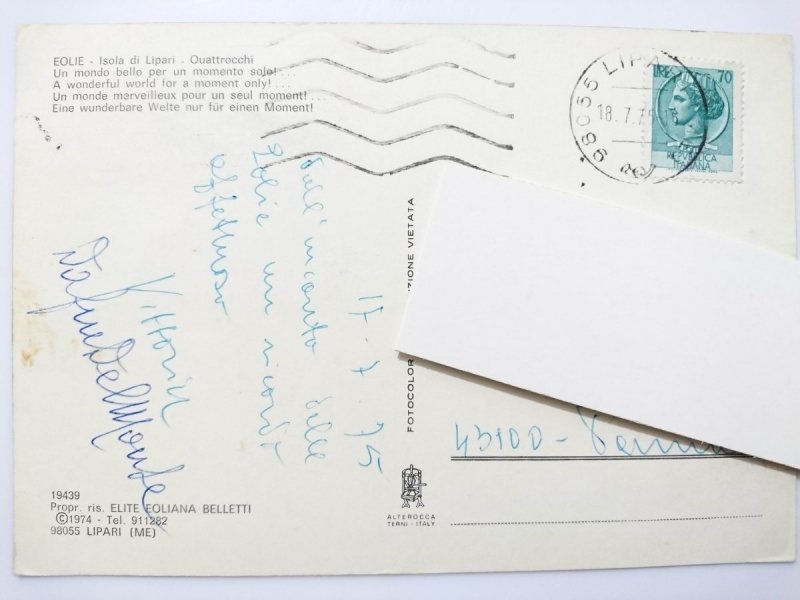 EOLIE - Isola di Lipari - Quattrocchi
Un mondo bello per un momento solo!...
A wonderful world for a moment only!...
Un monde merveilleux pour un seul moment!...
Eine wunderbare Welte nur für einen Moment!
98055 LIPARI
18.7.75
LIRE 70
REPUBBLICA
ITALIANA
17-7-75
Dall'incanto delle
Eolie un ricordo
affettuoso
Vittoria
Dafne Del Monte
FOTOCOLOR
ZIONE VIETATA
43100 - Parma
19439
Propr. ris. ELITE EOLIANA BELLETTI
©1974 - Tel. 911282
98055 LIPARI (ME)
ALTEROCCA
TERNI - ITALY